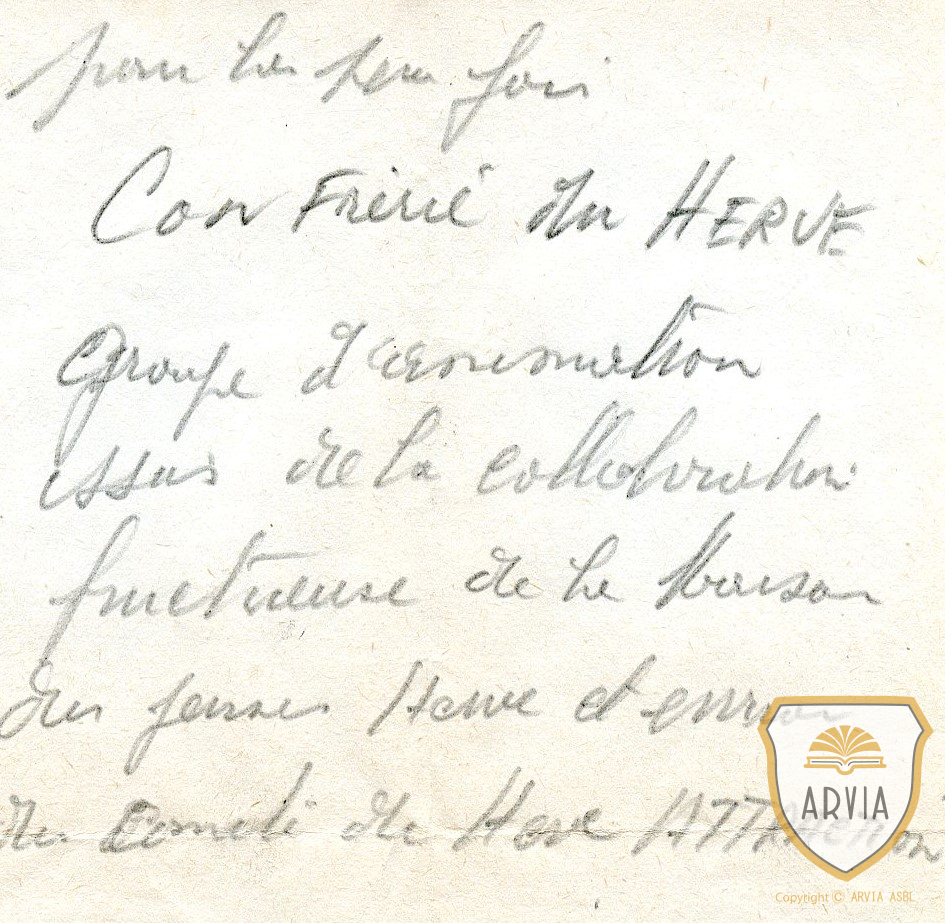 pour la 1ere fois
Con Frérie du HERVE
Groupe d'animation
issus de la collaboration
fructueuse de la Maison
des jeunes Herve et
du Comité de Herve ATTRACTION
ARVIA
Copyright © ARVIA ASBL